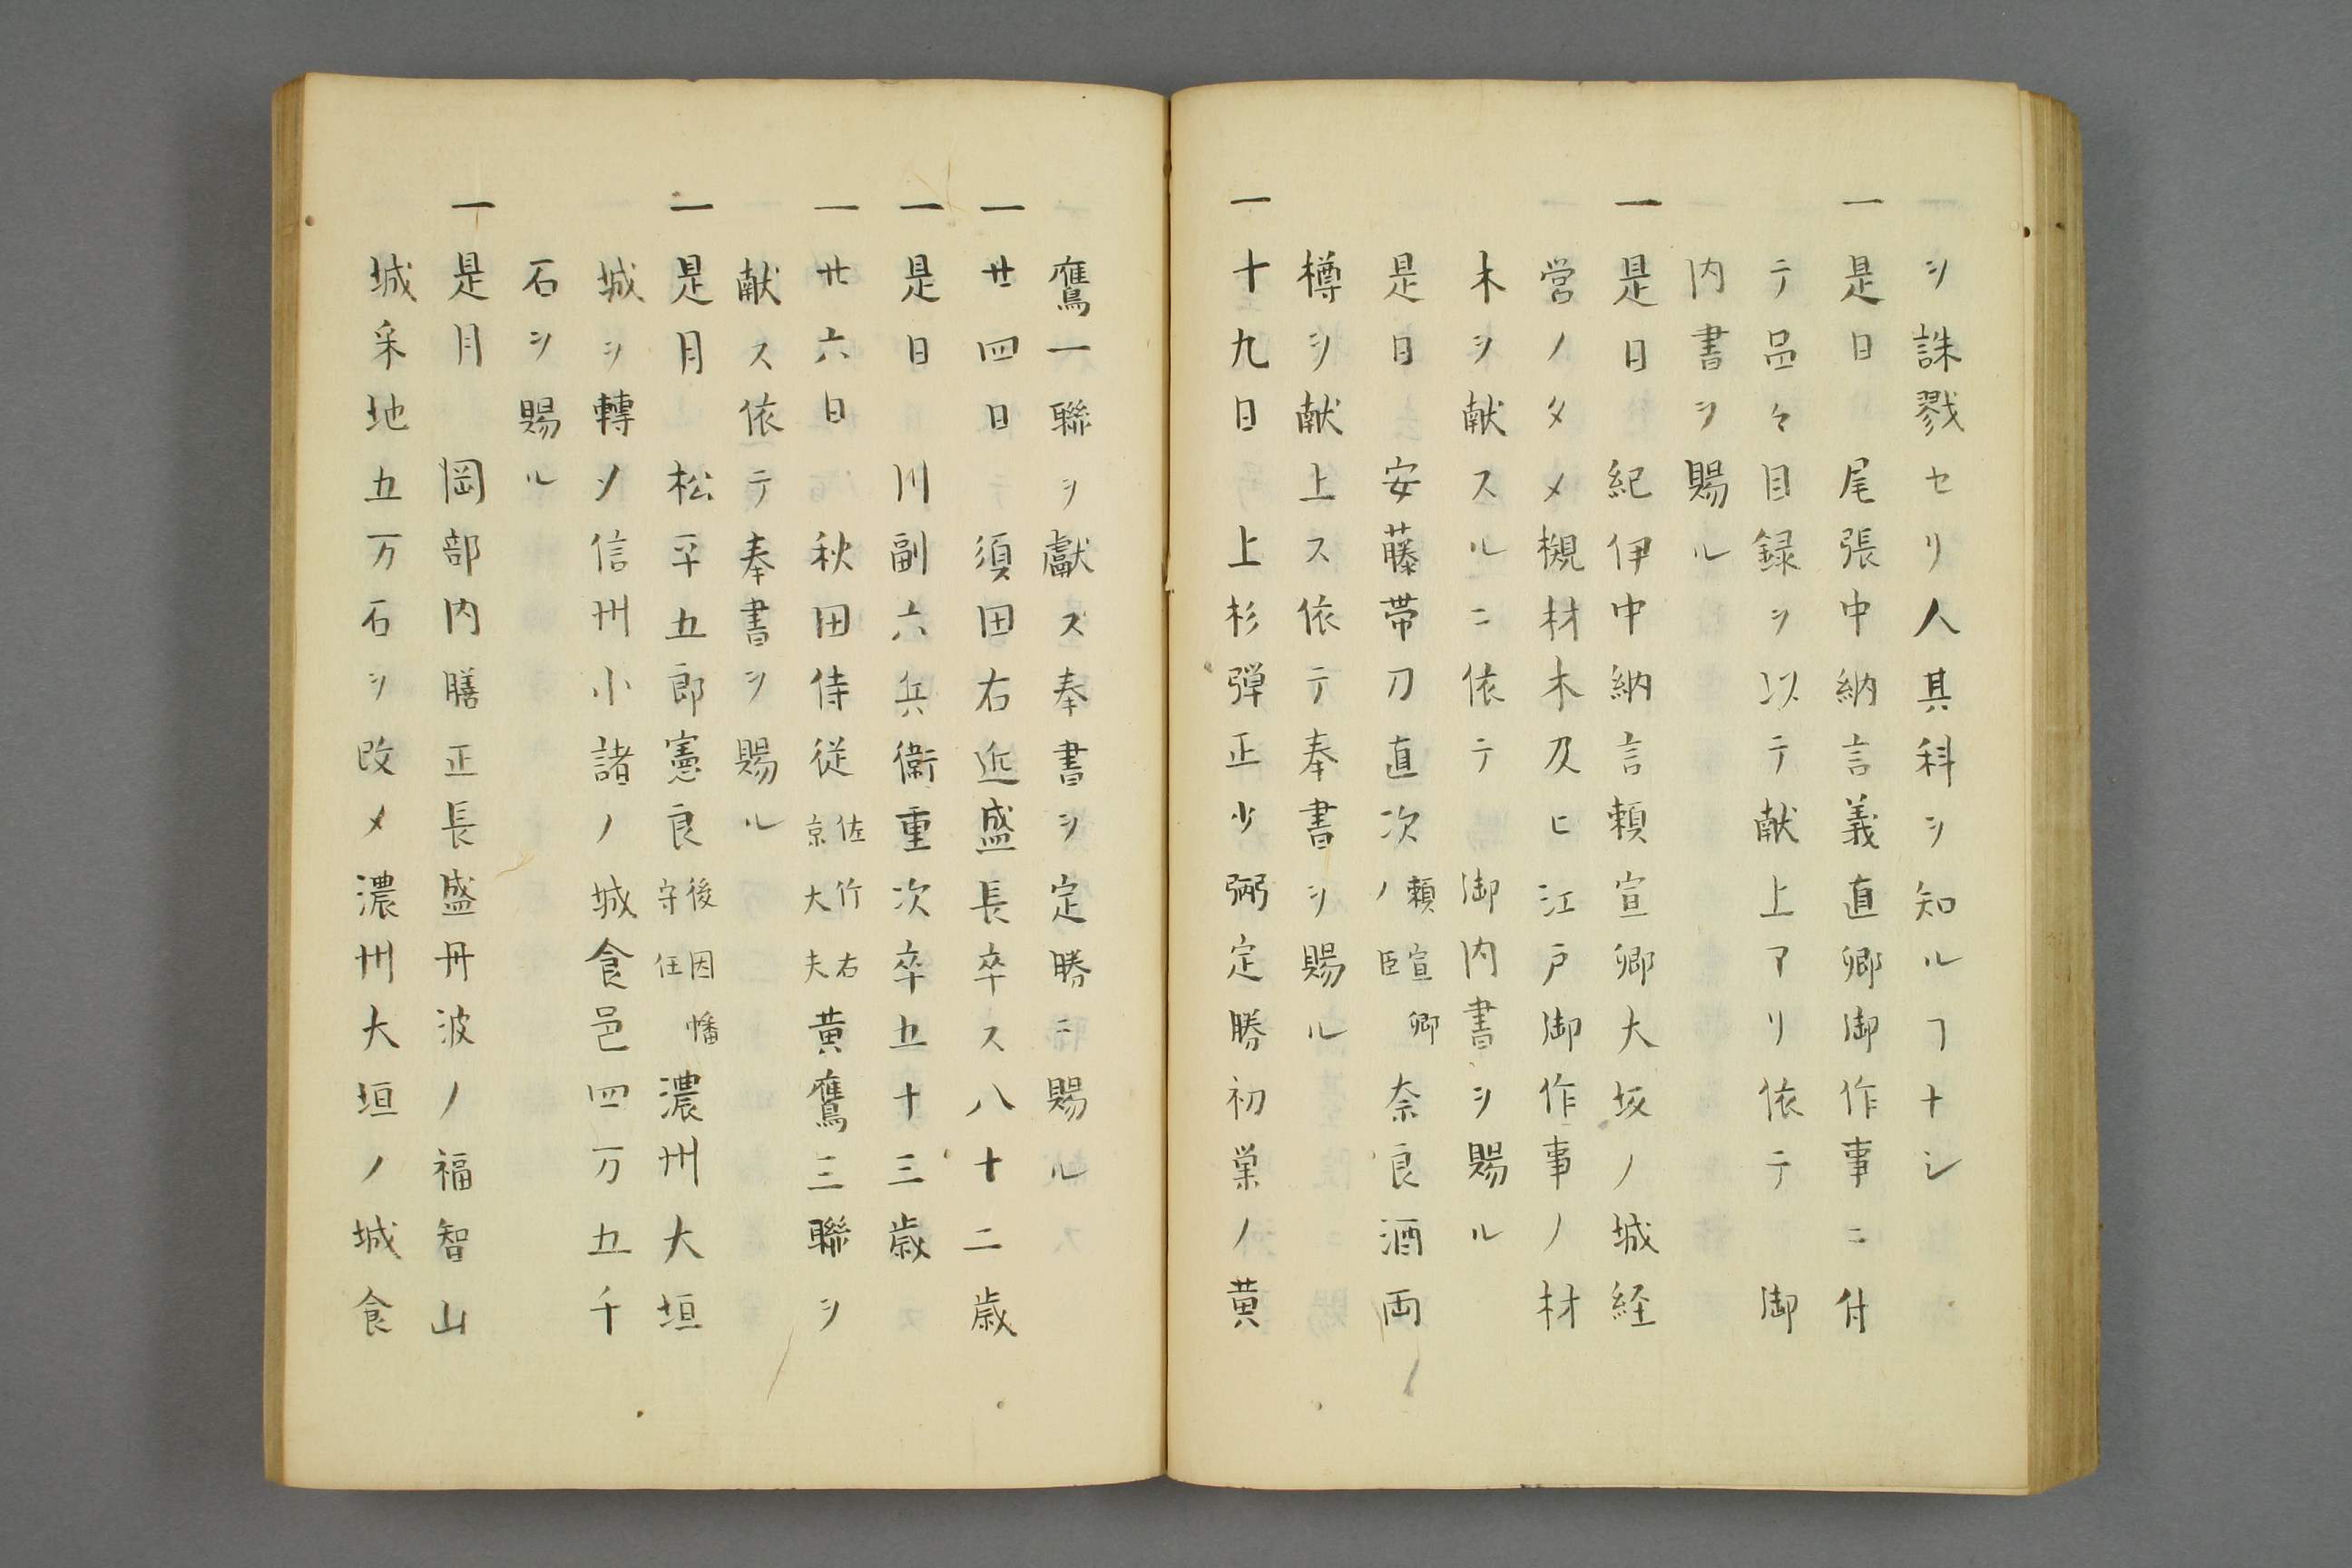 ヲ誅戮セリ人其科ヲ知ルヿナシ
一是日　尾張中納言義直卿御作事ニ付
テ品々目録ヲ以テ献上アリ依テ　御
内書ヲ賜ル
一是日　紀伊中納言頼宣卿大坂ノ城経
営ノタメ槻材木及ヒ江戸御作事ノ材
木ヲ献スルニ依テ　御内書ヲ賜ル
是日　安藤帯刀直次頼宣卿ノ臣　奈良酒両
樽ヲ献上ス依テ奉書ヲ賜ル
一十九日　上杉弾正少弼定勝初巣ノ黄
鷹一聯ヲ獻ズ奉書ヲ定勝ニ賜ル
一廿四日　須田右近盛長卒ス八十二歳
一是日　川副六兵衛重次卒五十三歳
一廿六日　秋田侍従佐竹右京大夫黄鷹三聯ヲ
献ス依テ奉書ヲ賜ル
一是月　松平五郎憲良後因幡守任濃州大垣
城ヲ轉ノ信州小諸ノ城食邑四万五千
石ヲ賜ル
一是月　岡部内膳正長盛丹波ノ福智山
城采地五万石ヲ改メ濃州大垣ノ城食